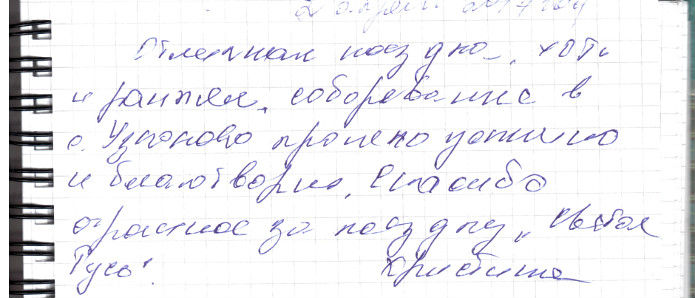 2 апреля 2017 год
Отличная поездка, хоть
и ранняя, соборование в
с. Узуново прошло успешно
и благотворно. Спасибо
огромное за поездку, "Святая
Русь". Кристина